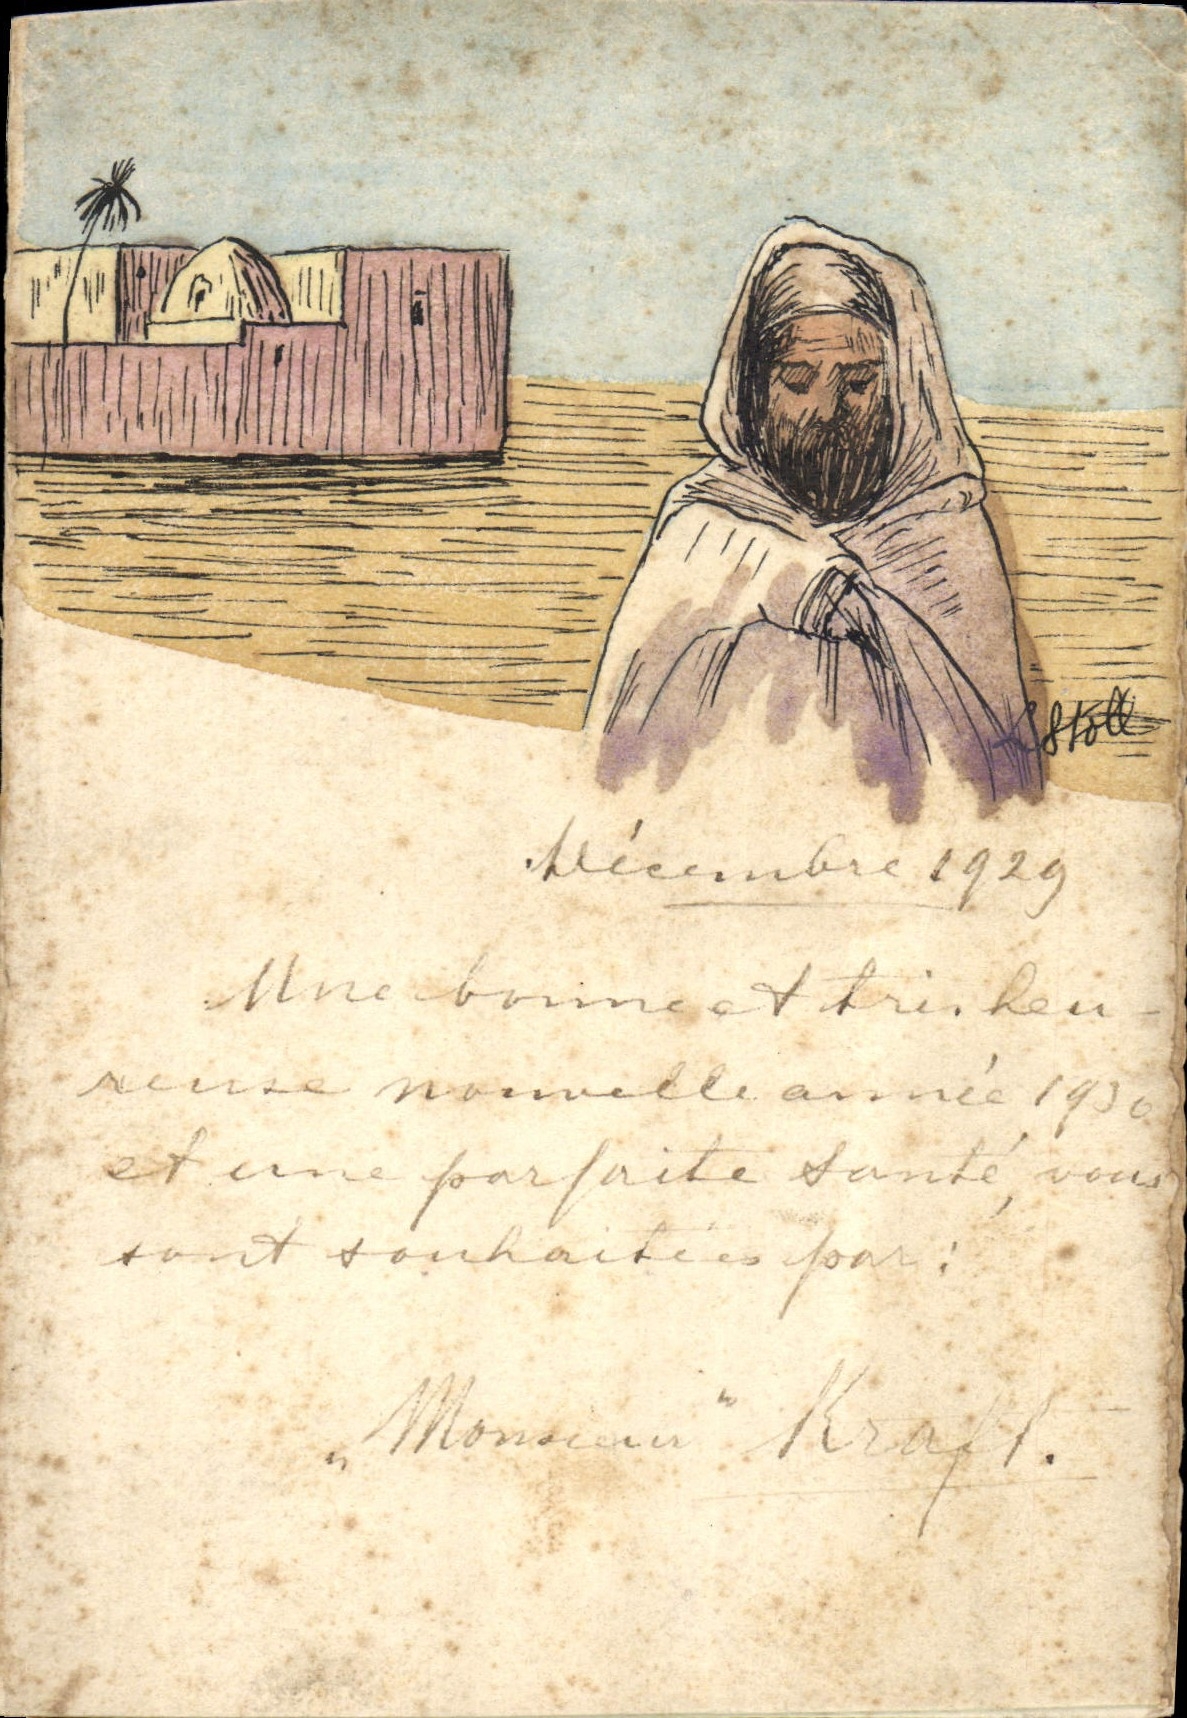 LStoll
Décembre 1929
Une bonne et très heu-
reuse nouvelle année 1930
et une parfaite santé, vous
sont souhaitées par :
„Monsieur" Kraft.